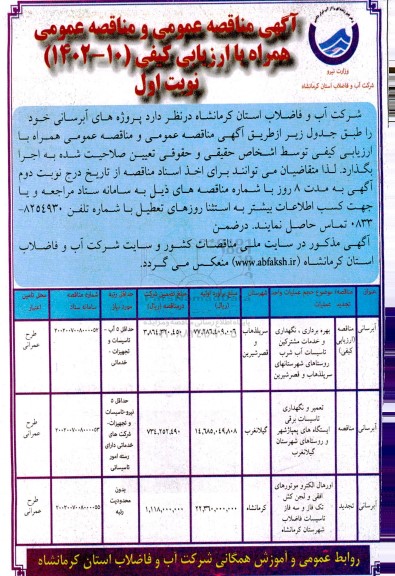 آگهی مناقصه عمومی و مناقصه عمومی
همراه با ارزیابی کیفی (۱۰-۱۴۰۲)
نوبت اول
وزارت نیرو
شرکت آب و فاضلاب استان کرمانشاه
شرکت آب و فاضلاب استان کرمانشاه درنظر دارد پروژه های آبرسانی خود
را طبق جدول زیر ازطریق آگهی مناقصه عمومی و مناقصه عمومی همراه با
ارزیابی کیفی توسط اشخاص حقیقی و حقوقی تعیین صلاحیت شده به اجرا
بگذارد. لذا متقاضیان می توانند برای اخذ اسناد مناقصه از تاریخ درج نوبت دوم
آگهی به مدت ۸ روز با شماره مناقصه های ذیل به سامانه ستاد مراجعه و یا
جهت کسب اطلاعات بیشتر به استثنا روزهای تعطیل با شماره تلفن ۸۲۵۴۹۳۰-
۰۸۳۳ تماس حاصل نمایند. درضمن
آگهی مذکور در سایت ملی مناقصات کشور و سایت شرکت آب و فاضلاب
استان کرمانشاه (www.abfaksh.ir) منعکس می گردد.
عنوان مناقصه/تجدید موضوع شهرستان شماره مناقصه سامانه ستاد محل تامین اعتبار
آبرسانی مناقصه (ارزیابی کیفی) بهره برداری ، نگهداری و خدمات مشترکین تاسیسات آب شرب روستاهای شهرستانهای سرپلذهاب و قصرشیرین سرپلذهاب و قصرشیرین ۳,۸۶۴,۳۲۰,۴۵۰ حداقل ۵ آب - تاسیسات و تجهیزات - خدماتی ۲۰۰۲۰۰۷۰۰۸۰۰۰۰۵۲ طرح عمرانی
آبرسانی مناقصه تعمیر و نگهداری تاسیسات برقی ایستگاه های پمپاژشهر و روستاهای شهرستان گیلانغرب گیلانغرب ۱۴,۶۸۵,۰۴۹,۸۰۸ ۷۳۴,۲۵۲,۴۹۰ حداقل ۵ نیرو-تاسیسات و تجهیزات- شرکت های خدماتی دارای رسته امور تاسیساتی ۲۰۰۲۰۰۷۰۰۸۰۰۰۰۵۳ طرح عمرانی
آبرسانی تجدید اورهال الکترو موتورهای افقی و لجن کش تک فاز و سه فاز تاسیسات فاضلاب شهرستان کرمانشاه کرمانشاه ۲۲,۳۶۰,۰۰۰,۰۰۰ ۱,۱۱۸,۰۰۰,۰۰۰ بدون محدودیت رتبه ۲۰۰۲۰۰۷۰۰۸۰۰۰۰۵۵ طرح عمرانی
روابط عمومی و آموزش همگانی شرکت آب و فاضلاب استان کرمانشاه